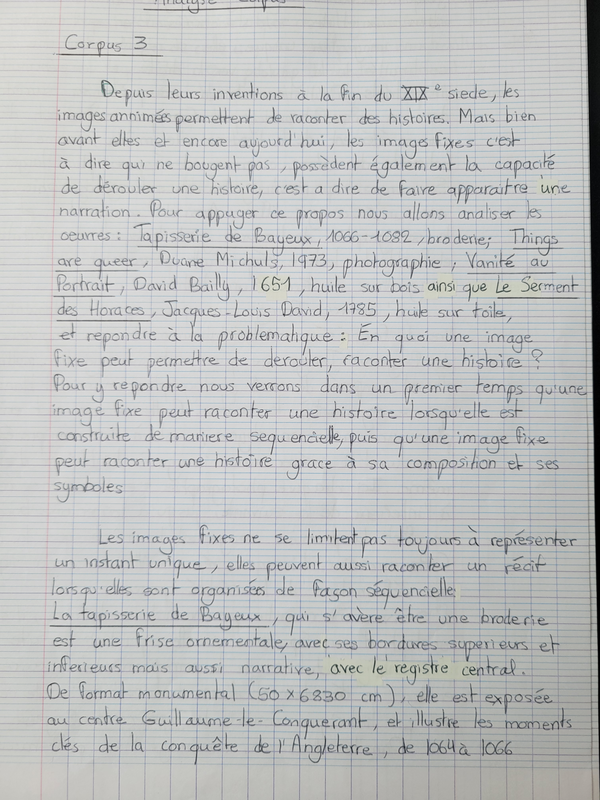 Analyse Corpus
Corpus 3
Depuis leurs inventions à la fin du XIXe siecle, les
images annimées permettent de raconter des histoires. Mais bien
avant elles et encore aujourd'hui, les images fixes c'est
à dire qui ne bougent pas, possèdent également la capacité
de dérouler une histoire, c'est a dire de faire apparaitre une
narration. Pour appuyer ce propos nous allons analiser les
oeuvres : Tapisserie de Bayeux, 1066-1082, broderie; Things
are queer, Duane Michals, 1973, photographie ; Vanité au
Portrait, David Bailly, 1651, huile sur bois ainsi que Le Serment
des Horaces, Jacques-Louis David, 1785, huile sur toile,
et repondre à la problematique : En quoi une image
fixe peut permettre de derouler, raconter une histoire ?
Pour y repondre nous verrons dans un premier temps qu'une
image fixe peut raconter une histoire lorsqu'elle est
construite de maniere sequencielle, puis qu'une image fixe
peut raconter une histoire grace à sa composition et ses
symboles
Les images fixes ne se limitent pas toujours à représenter
un instant unique, elles peuvent aussi raconter un récit
lorsqu'elles sont organisées de façon séquencielle.
La tapisserie de Bayeux, qui s'avère être une broderie
est une frise ornementale, avec ses bordures superieurs et
inferieurs mais aussi narrative, avec le registre central.
De format monumental (50 x 6830 cm), elle est exposée
au centre Guillaume-le-Conquerant, et illustre les moments
clés de la conquête de l'Angleterre, de 1064 à 1066